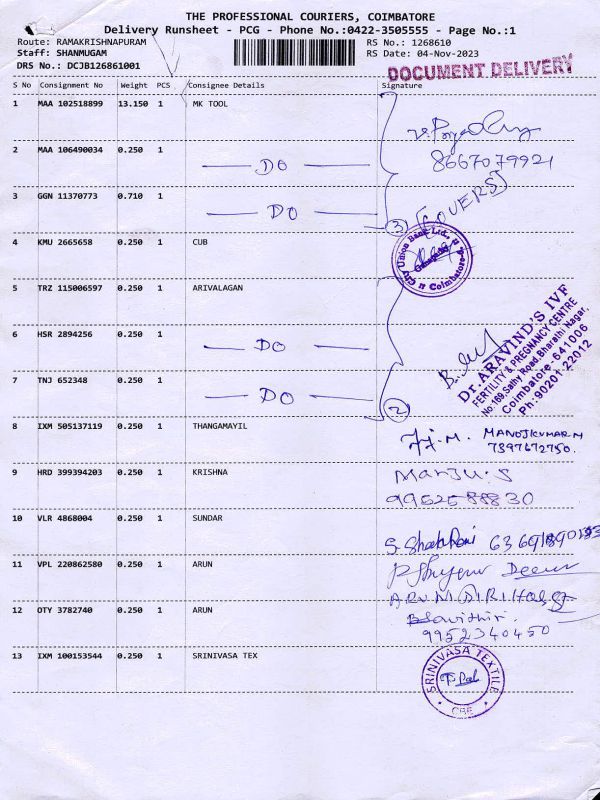 THE PROFESSIONAL COURIERS, COIMBATORE
Delivery Runsheet - PCG - Phone No.:0422-3505555 - Page No.:1
Route: RAMAKRISHNAPURAM
RS No.: 1268610
Staff: SHANMUGAM
RS Date: 04-Nov-2023
DRS No.: DCJB126861001
DOCUMENT DELIVERY
S No Consignment No Weight PCS Consignee Details Signature
1 MAA 102518899 13.150 1 MK TOOL
8667079921
2 MAA 106490034 0.250 1 DO
3 GGN 11370773 0.710 1 DO
3 [COVERS]
4 KMU 2665658 0.250 1 CUB
City Union Bank Ltd., Coimbatore
5 TRZ 115006597 0.250 1 ARIVALAGAN
6 HSR 2894256 0.250 1 DO
7 TNJ 652348 0.250 1 DO
2
Dr. ARAVIND'S IVF
FERTILITY & PREGNANCY CENTRE
No:169, Sathy Road, Bharathi Nagar,
Coimbatore - 641 006
Ph: 90201 22012
8 IXM 505137119 0.250 1 THANGAMAYIL
MANOJKUMAR M
7397672750.
9 HRD 399394203 0.250 1 KRISHNA
Manju.S
10 VLR 4868004 0.250 1 SUNDAR
11 VPL 220862580 0.250 1 ARUN
12 OTY 3782740 0.250 1 ARUN
9952340450
13 IXM 100153544 0.250 1 SRINIVASA TEX
SRINIVASA TEXTILE
CBE